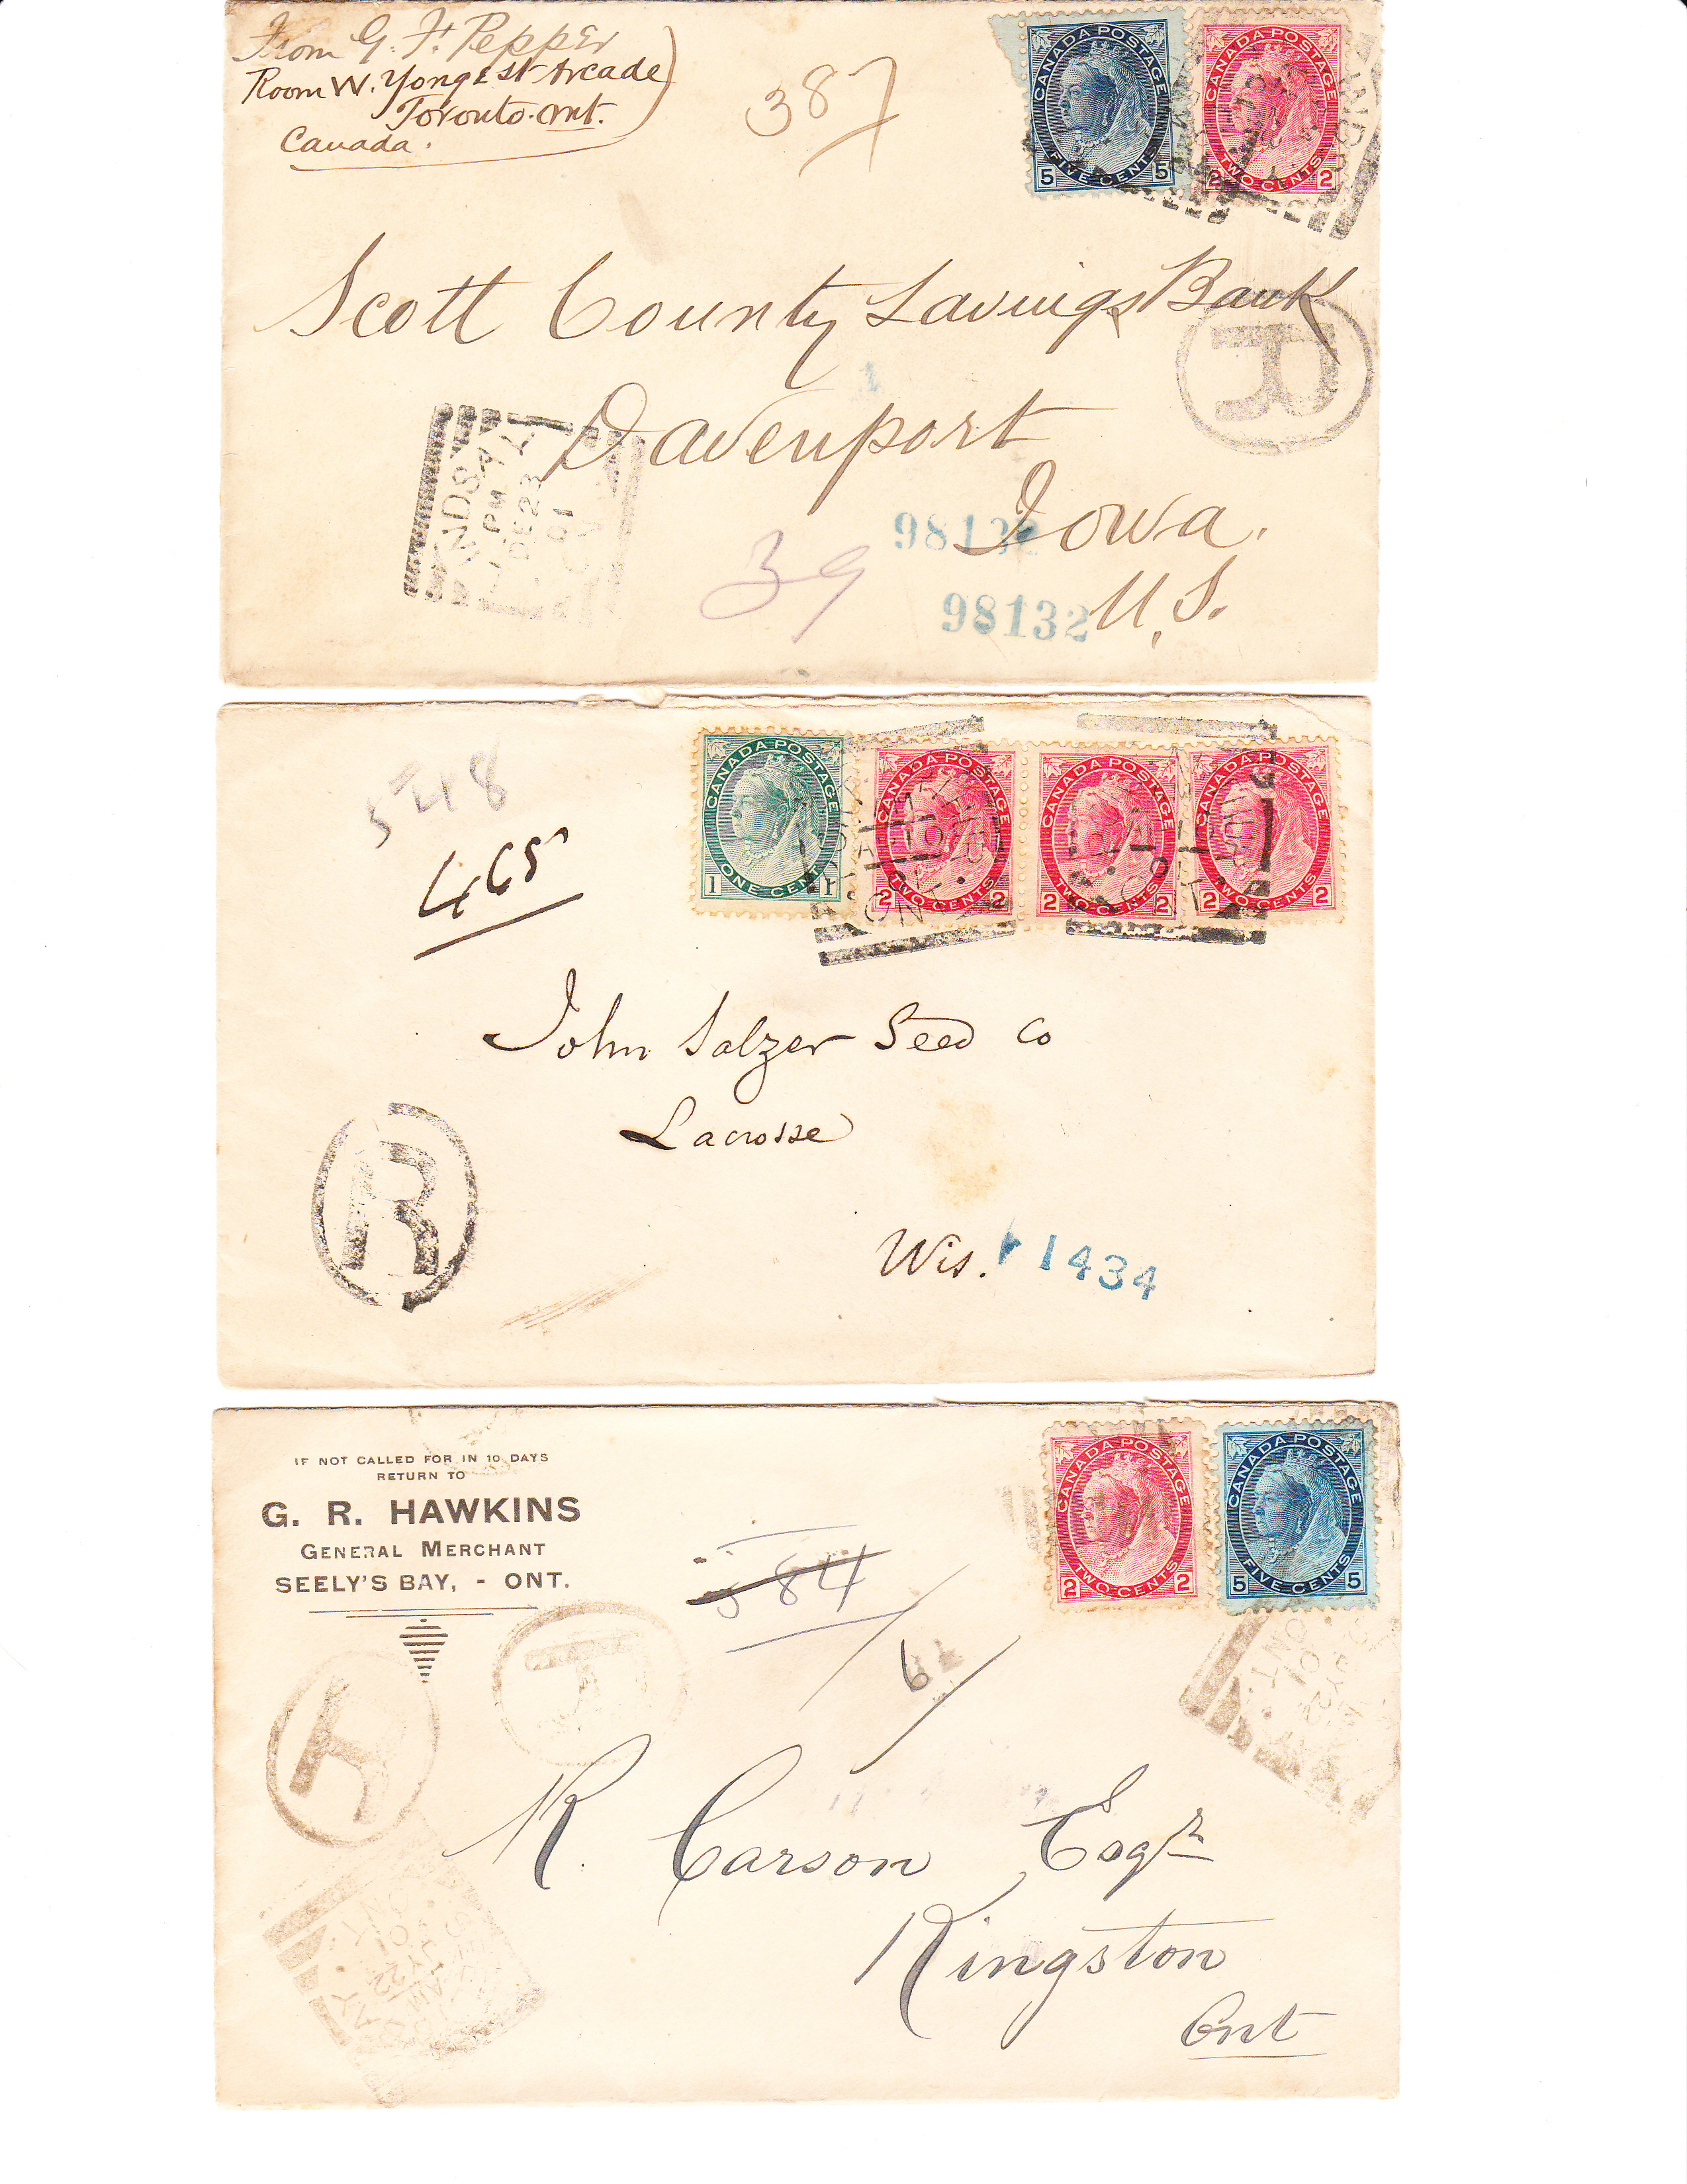 From G. F. Pepper
Room W. Yonge St Arcade
Toronto. Ont.
Canada.
387
CANADA POSTAGE
FIVE CENTS
5 5
CANADA POSTAGE
TWO CENTS
2 2
Scott County Savings Bank
R
Davenport
LINDSAY
PM
DE 23
01
Iowa.
98132
39
98132
U.S.
548
465
CANADA POSTAGE
ONE CENT
1 1
CANADA POSTAGE
TWO CENTS
2 2
CANADA POSTAGE
TWO CENTS
2 2
CANADA POSTAGE
TWO CENTS
2 2
ONT
John Salzer Seed Co
Lacrosse
R
Wis.
1434
IF NOT CALLED FOR IN 10 DAYS
RETURN TO
G. R. HAWKINS
GENERAL MERCHANT
SEELY'S BAY, - ONT.
384
6
CANADA POSTAGE
TWO CENTS
2 2
CANADA POSTAGE
FIVE CENTS
5 5
ONT
01
JY 2
R
R. Carson Esqr
Kingston
Ont